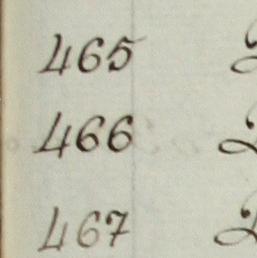 465
466
467